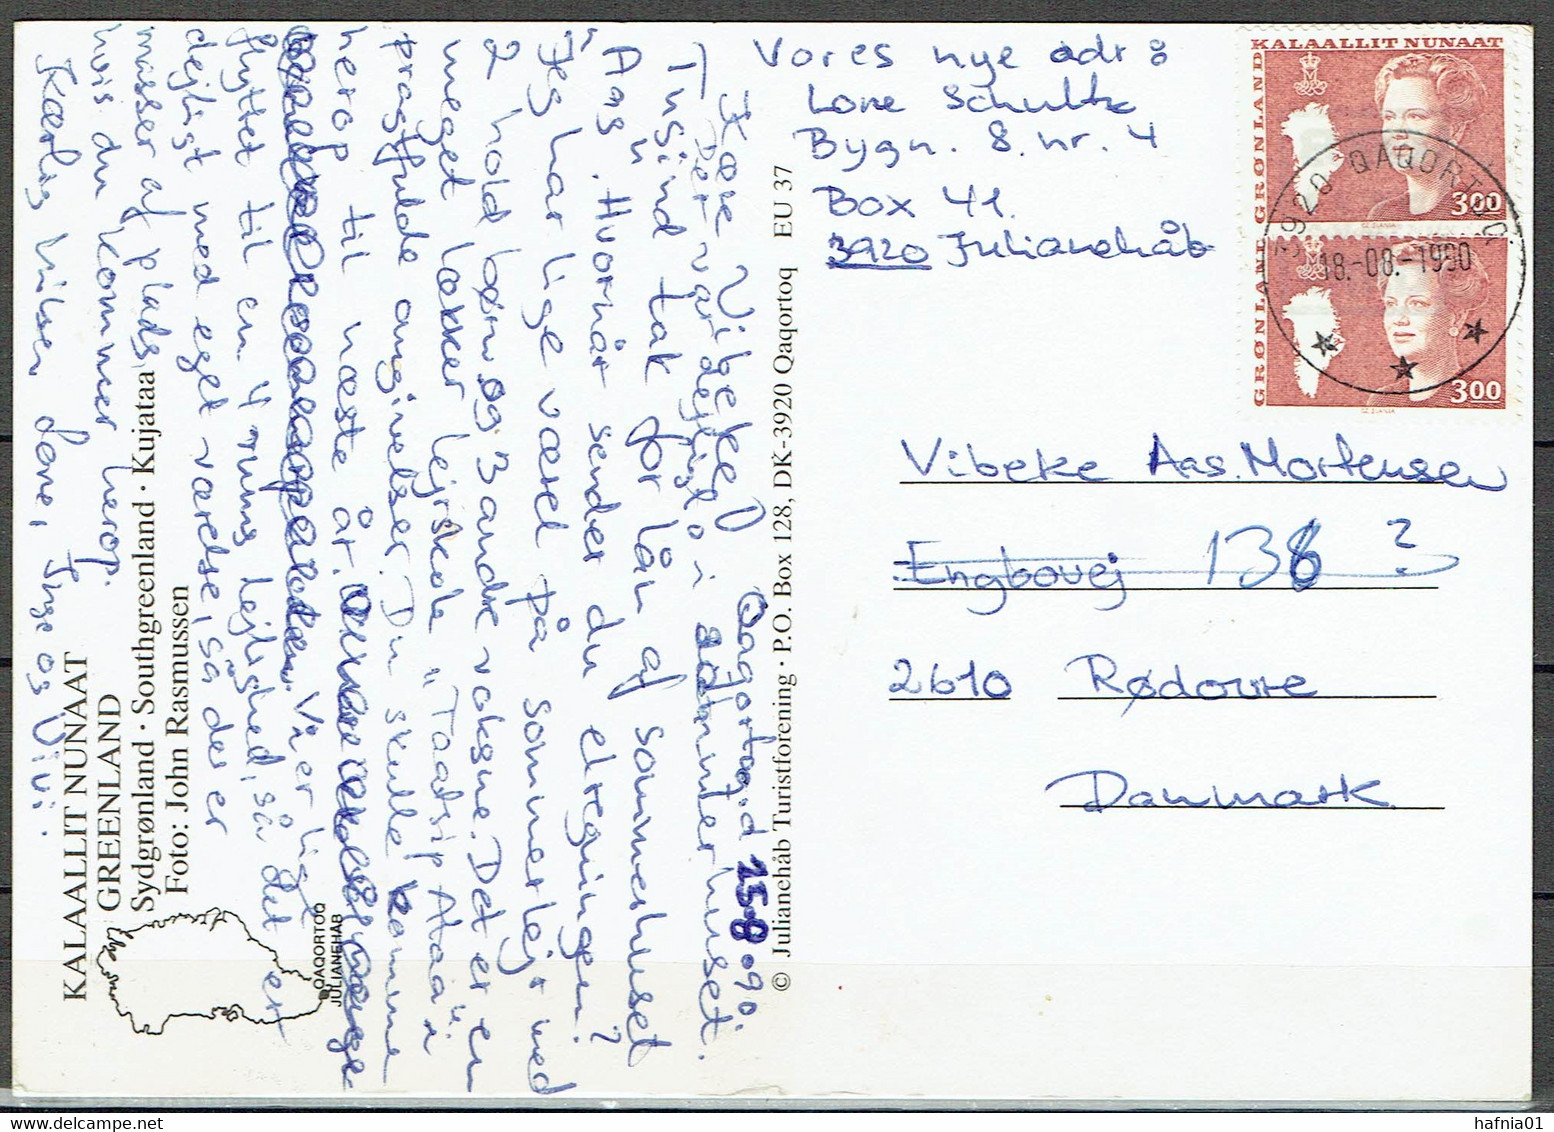 Vores nye adr:
Lone Schultz
Bygn. 8. nr. 4
Box 41.
3920 Julianehåb
KALAALLIT NUNAAT
GRØNLAND
3.00
KALAALLIT NUNAAT
GRØNLAND
3.00
3920 QAQORTOQ
18.-08.-1990
Vibeke Aas. Mortensen
Engbovej 138 ?
2610 Rødovre
Danmark
Qaqortoq, d 15-8.90.
Kære Vibeke!
Der var dejligt i sommerhuset.
Tusind tak for lån af sommerhuset
Aas. Hvornår sender du elregningen?
Jeg har lige været på sommerlejr med
2 hold børn og 3 andre voksne. Det er en
meget lækker lejrskole "Taatsip Ataa" i
pragtfulde omgivelser. Du skulle komme
herop til næste år.
Vi er lige
flyttet til en 4 rums lejlighed, så det er
dejligt med eget værelse, så der er
masser af plads,
hvis du kommer herop.
Kærlig hilsen Lone, Inge og Vivi.
KALAALLIT NUNAAT
GREENLAND
Sydgrønland · Southgreenland · Kujataa
Foto: John Rasmussen
QAQORTOQ
JULIANEHÅB
© Julianehåb Turistforening · P.O. Box 128, DK-3920 Qaqortoq EU 37
hafnia01